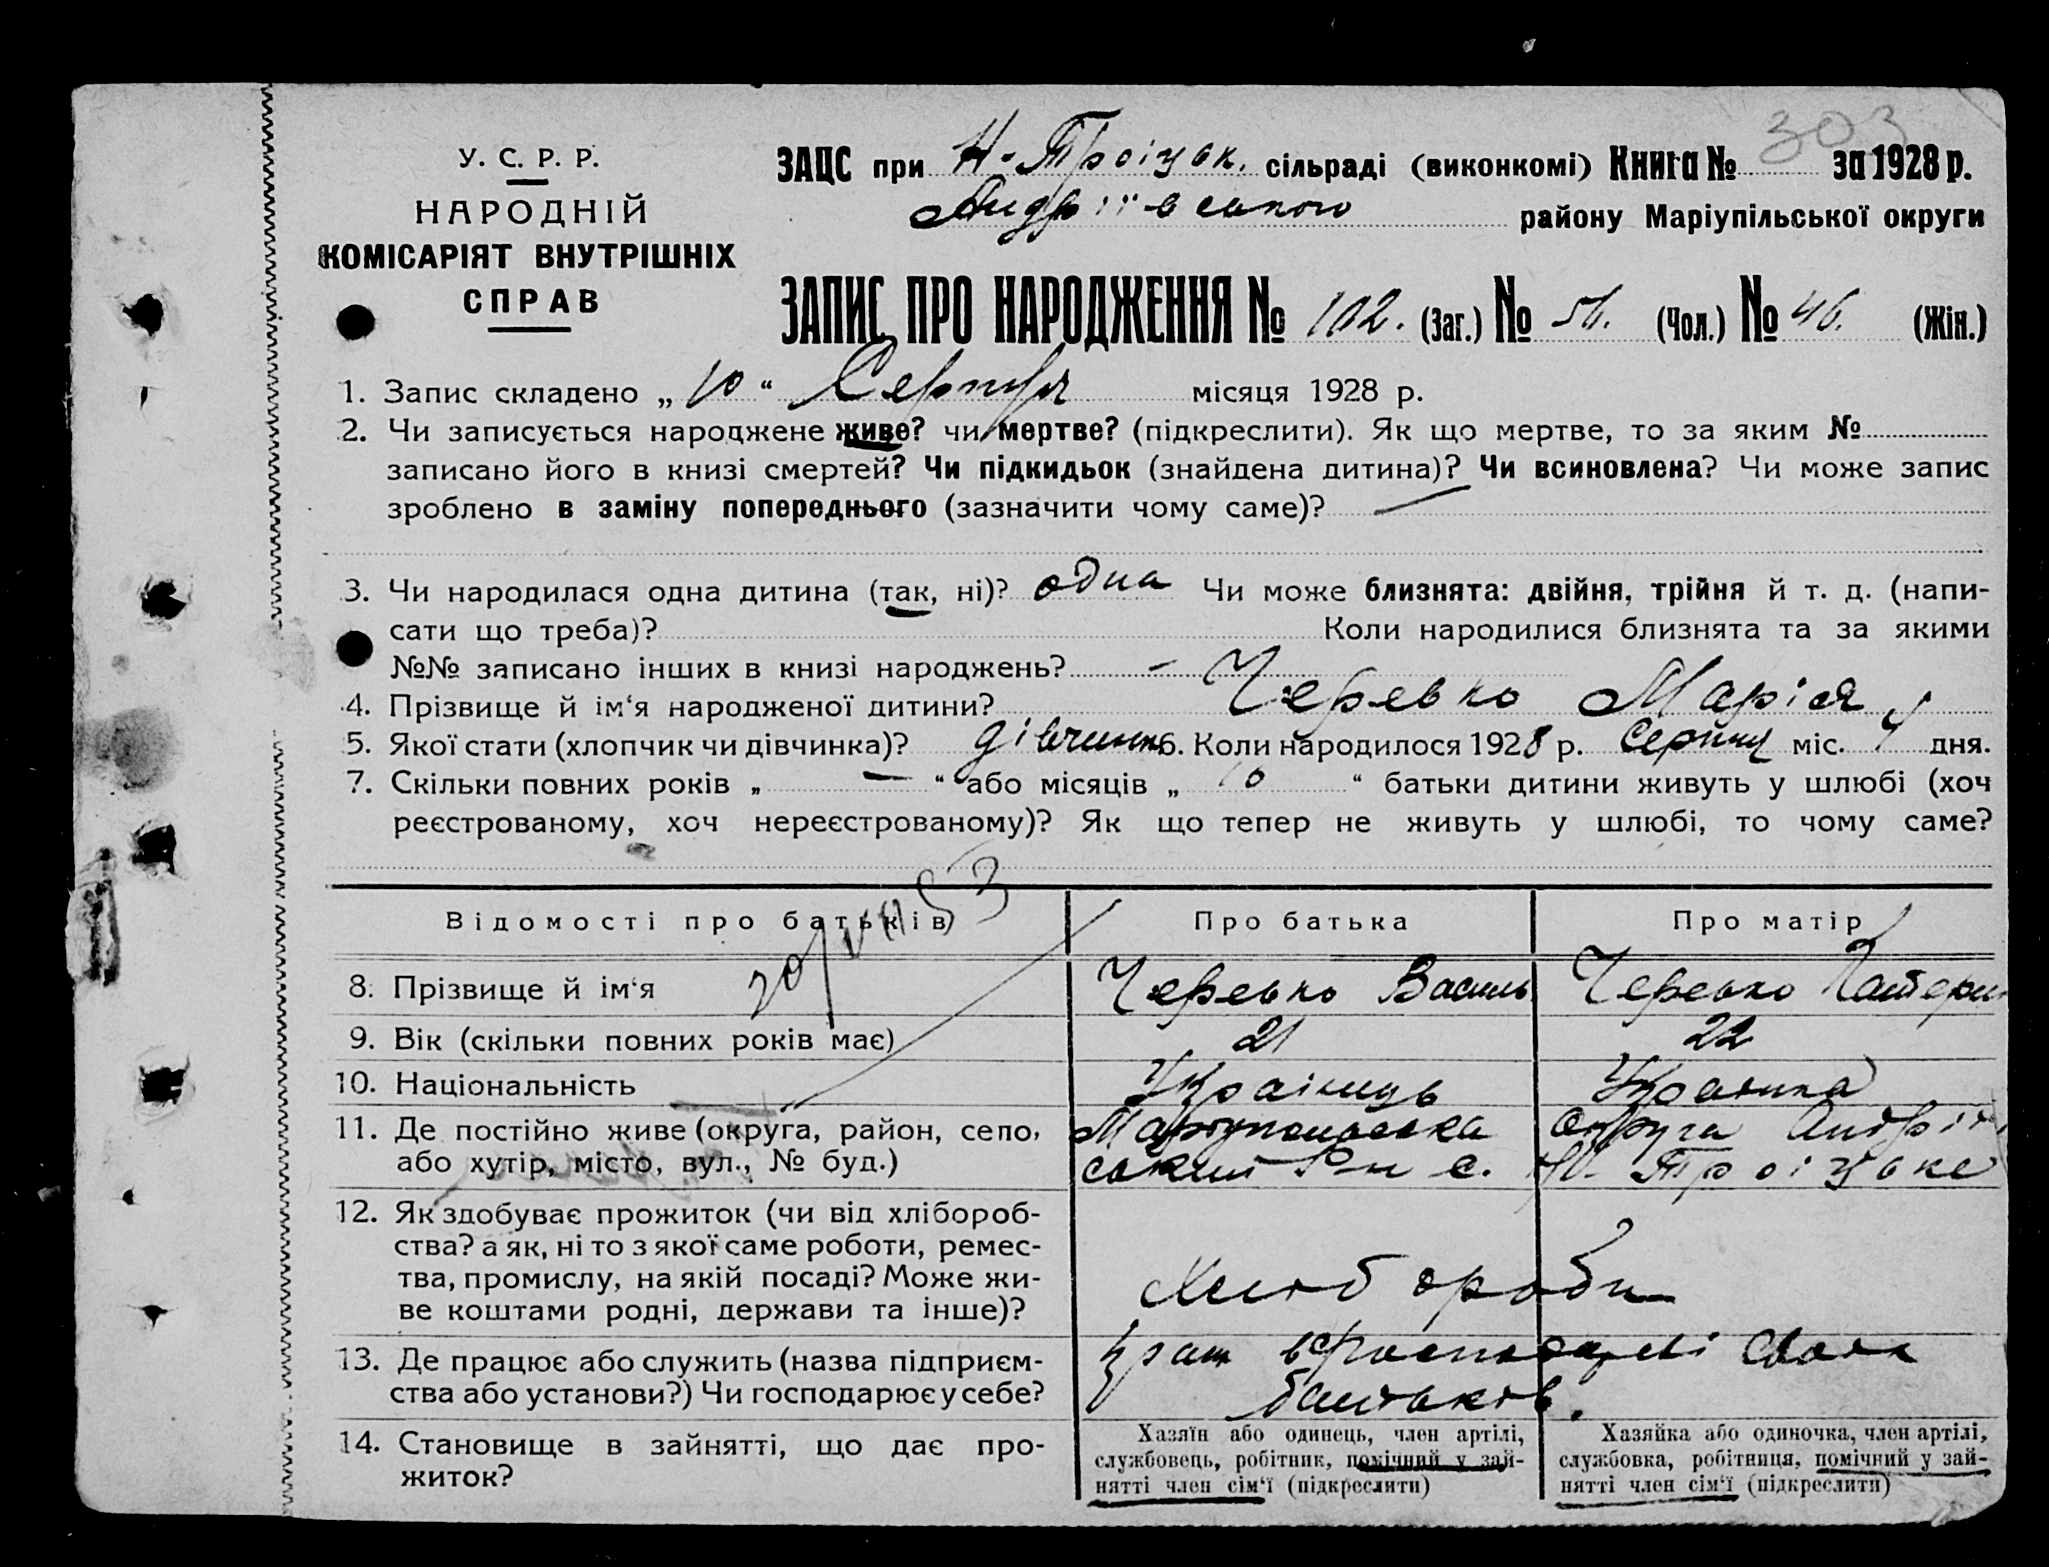 303
У. С. Р. Р.
НАРОДНІЙ
КОМІСАРІЯТ ВНУТРІШНІХ
СПРАВ
ЗАЦС при Н-Троіцьк. сільраді (виконкомі) Книга № за 1928 р.
Андріївського району Маріупільської округи
ЗАПИС ПРО НАРОДЖЕННЯ № 102. (Заг.) № 56. (Чол.) № 46. (Жін.)
1. Запис складено „ 10 “ Серпня місяця 1928 р.
2. Чи записується народжене живе? чи мертве? (підкреслити). Як що мертве, то за яким №
записано його в книзі смертей? Чи підкидьок (знайдена дитина)? Чи всиновлена? Чи може запис
зроблено в заміну попереднього (зазначити чому саме)? —
3. Чи народилася одна дитина (так, ні)? одна Чи може близнята: двійня, трійня й т. д. (напи-
сати що треба)? Коли народилися близнята та за якими
№№ записано інших в книзі народжень? -
4. Прізвище й ім‘я народженої дитини? Черевко Марія
5. Якої стати (хлопчик чи дівчинка)? дівчинка 6. Коли народилося 1928 р. Серпня міс. 4 дня.
7. Скільки повних років „ — “ або місяців „ 10 “ батьки дитини живуть у шлюбі (хоч
реєстрованому, хоч нереєстрованому)? Як що тепер не живуть у шлюбі, то чому саме?
Відомості про батьків Про батька Про матір
20/VIII 53
8. Прізвище й ім‘я Черевко Василь Черевко Катерин
9. Вік (скільки повних років має) 21 22
10. Національність Українець Українка
11. Де постійно живе (округа, район, село, Маріупольська округа Андрії
або хутір, місто, вул., № буд.) ський Р-н с. Н. Троіцьке
12. Як здобуває прожиток (чи від хлібороб-
ства? а як, ні то з якої саме роботи, ремес-
тва, промислу, на якій посаді? Може жи-
ве коштами родні, держави та інше)?
Хлібороби
13. Де працює або служить (назва підприєм-
ства або установи?) Чи господарює у себе?
в господарві своїх
батьків.
14. Становище в зайнятті, що дає про-
житок?
Хазяїн або одинець, член артілі,
службовець, робітник, помічний у зай-
нятті член сім‘ї (підкреслити)
Хазяйка або одиночка, член артілі,
службовка, робітниця, помічний у зай-
нятті член сім‘ї (підкреслити)